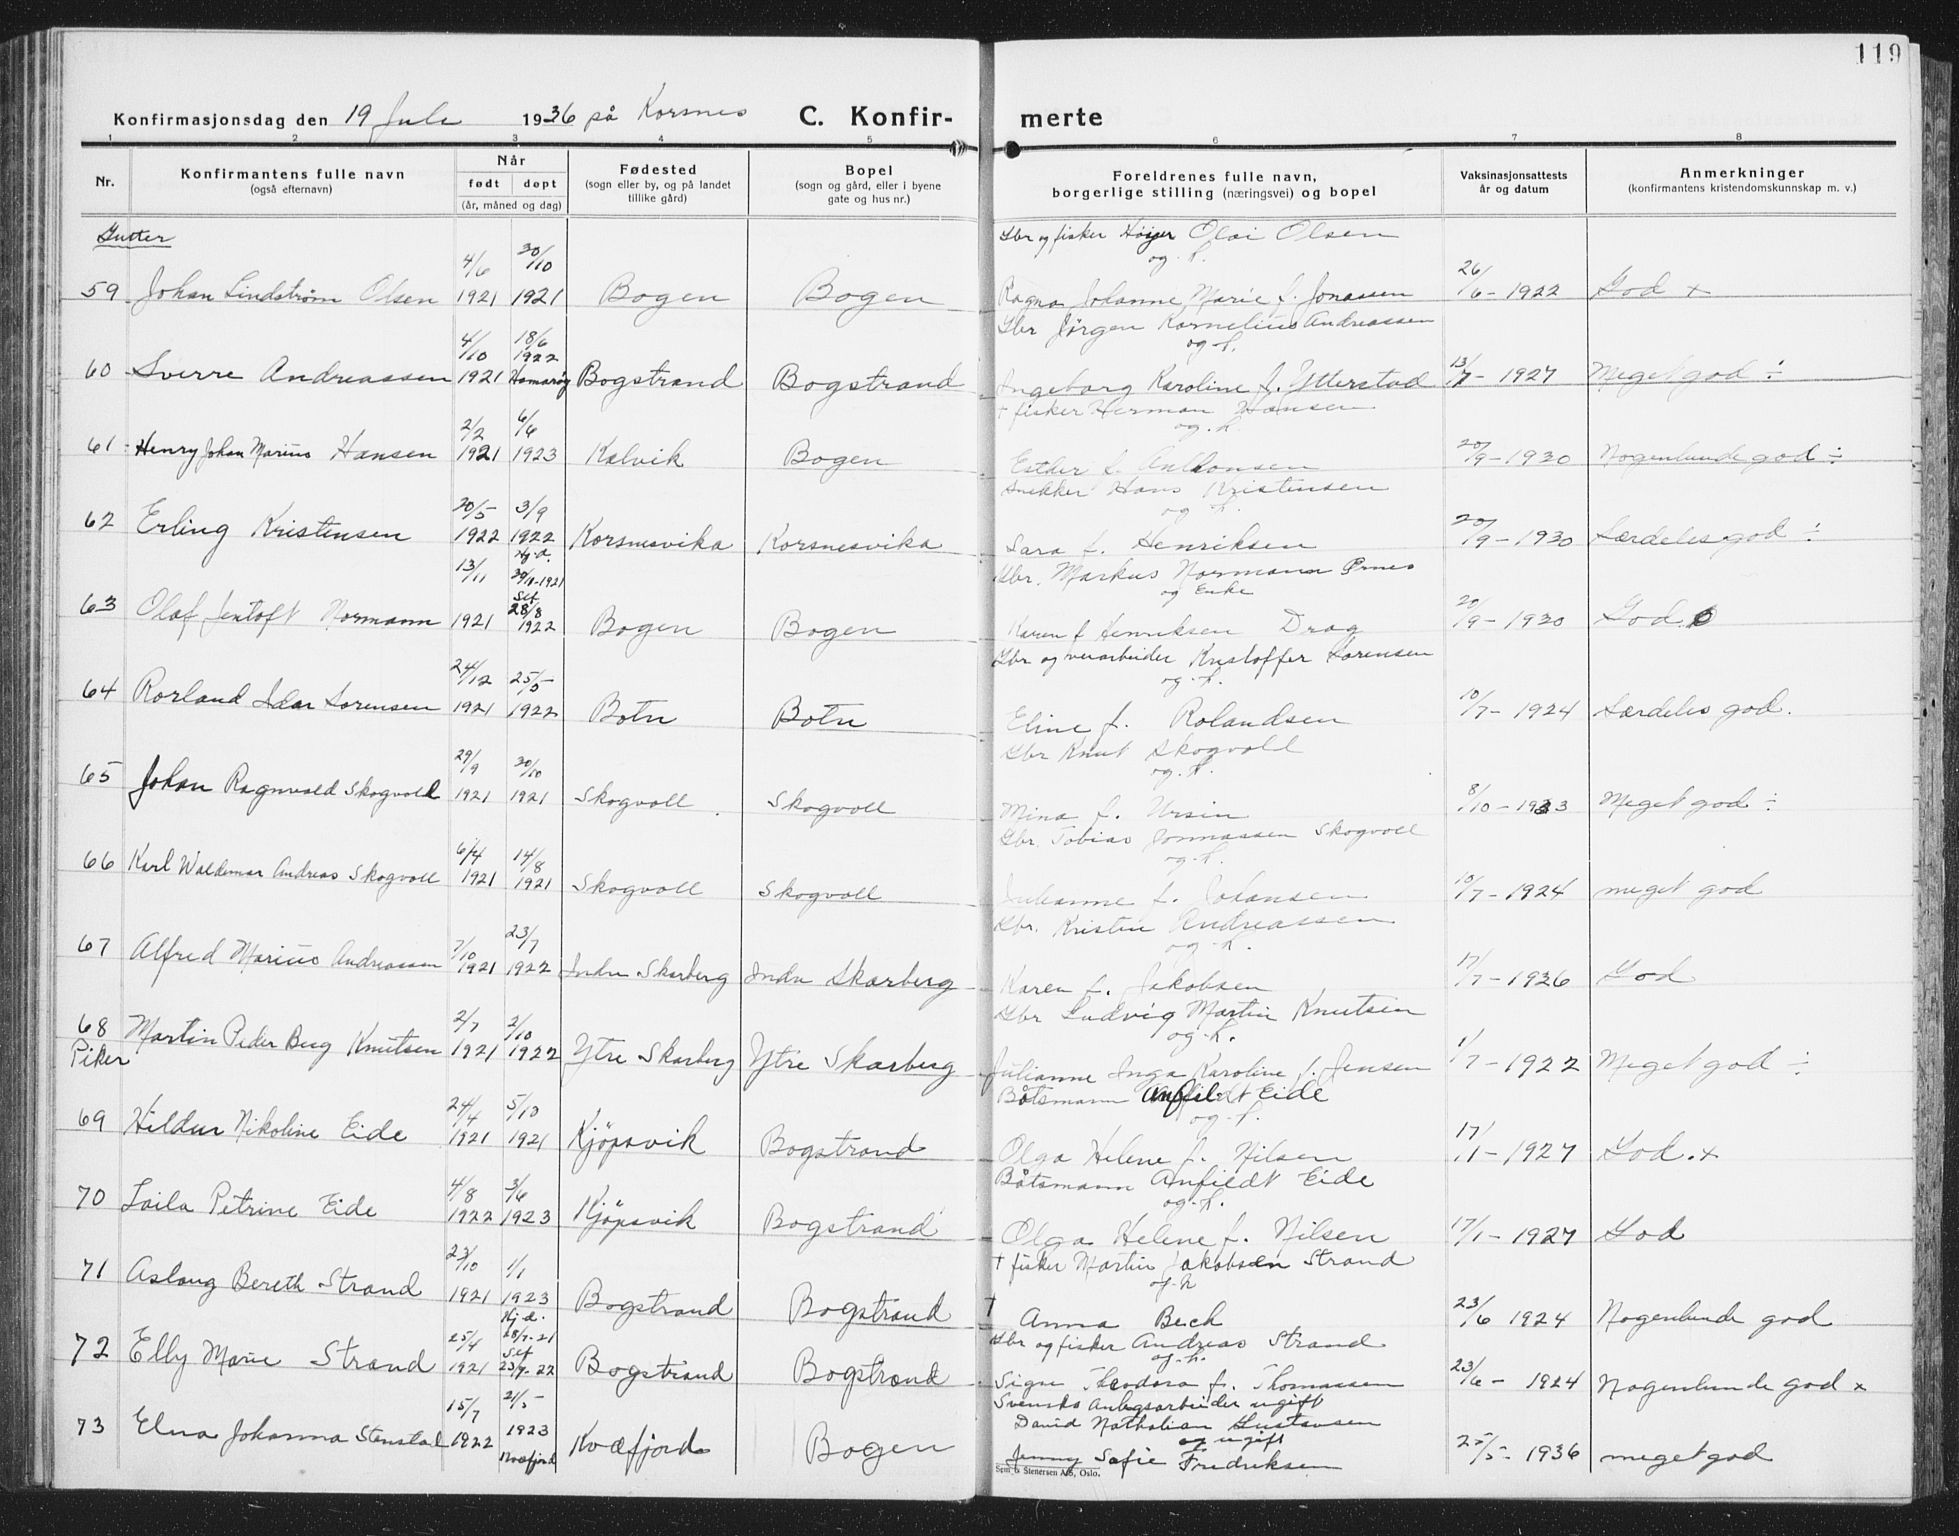 119
Konfirmasjonsdag den 19 Juli 1936 på Korsnes C. Konfir- merte
1 2 3 4 5 6 7 8
Nr.
Konfirmantens fulle navn
(også efternavn)
Når
født døpt
(år, måned og dag)
Fødested
(sogn eller by, og på landet
tillike gård)
Bopel
(sogn og gård, eller i byene
gate og hus nr.)
Foreldrenes fulle navn,
borgerlige stilling (næringsvei) og bopel
Vaksinasjonsattests
år og datum
Anmerkninger
(konfirmantens kristendomskunnskap m. v.)
Gutter
Gbr og fisker Høyer Olai Olsen
og h.
59 Johan Lindstrøm Olsen 4/6 1921 30/10 1921 Bogen Bogen Ragna Johanne Marie f. Jonassen 26/6 - 1922 God +
Gbr Jørgen Kornelius Andreassen
og h.
60 Sverre Andreassen 4/10 1921 18/6 1922 Hamarøy Bogstrand Bogstrand Ingeborg Karoline f. Ytterstad 13/7 - 1927 Meget god ÷
+ fisker Herman Hansen
og h
61 Henry Johan Marius Hansen 2/2 1921 6/6 1923 Kalvik Bogen Esther f. Anthonsen 20/9 - 1930 Nogenlunde god ÷
Snekker Hans Kristensen
og h.
62 Erling Kristensen 20/5 1922 3/9 1922 Korsnesvika Korsnesvika Sara f. Henriksen 20/9 - 1930 Særdeles god ÷
Gbr. Markus Normann
og Enke
63 Olaf Jentoft Normann 13/11 1921 Hj.d. 30/11-1921 Stf 28/8 1922 Bogen Bogen Karen f Henriksen Drag 20/9 - 1930 God.
Gbr og veiarbeider Kristoffer Sørensen
og h.
64 Rorland Idar Sørensen 24/12 1921 25/5 1922 Botn Botn Eline f. Rolandsen 10/7 - 1924 Særdeles god.
Gbr Knut Skogvoll
og h.
65 Johan Ragnvald Skogvoll 29/9 1921 30/10 1921 Skogvoll Skogvoll Mina f. Ursin 8/10 - 1933 Meget god ÷
Gbr. Tobias Jonnassen Skogvoll
og h.
66 Karl Waldemar Andreas Skogvoll 6/4 1921 14/8 1921 Skogvoll Skogvoll Julianne f. Johansen 10/7 - 1924 meget god
Gbr. Kristin Andreassen
og h.
67 Alfred Marius Andreassen 7/10 1921 23/7 1922 Indre Skarberg Indre Skarberg Karen f. Jakobsen 17/7 - 1936 God
Gbr Ludvig Martin Knutsen
og h.
68 Martin Peder Berg Knutsen 2/7 1921 2/10 1922 Ytre Skarberg Ytre Skarberg Julianne Inga Karoline f. Jensen 1/7 - 1922 Meget god ÷
Piker
Båtsmann Anfeldt Eide
og h.
69 Hildur Nikoline Eide 24/4 1921 5/10 1921 Kjöpsvik Bogstrand Olga Helene f. Nilsen 17/1 - 1927 God. +
Båtsmann Anfeldt Eide
og h.
70 Laila Petrine Eide 4/8 1922 3/6 1923 Kjöpsvik Bogstrand Olga Helene f. Nilsen 17/1 - 1927 God
+ fisker Martin Jakobsen Strand
og h
71 Aslaug Bereth Strand 23/10 1921 1/1 1923 Bogstrand Bogstrand + Anna Bech 23/6 1924 Nogenlunde god
Gbr og fisker Andreas Strand
og h.
72 Elly Marie Strand 25/4 1921 Hj.d. 28/7-21 Stf 23/7-22 Bogstrand Bogstrand Signe Theodora f. Thomassen 23/6 - 1924 Nogenlunde god +
Svenske Anlegsarbeider ugift
David Nathalian Gustavsen
og ugift
73 Elna Johanna Stenstad 15/7 1922 21/5 1923 Kvæfjord Kvæfjord Bogen Jenny Sofie Fredriksen 25/5 - 1936 meget god
Sem & Stenersen A/S, Oslo.